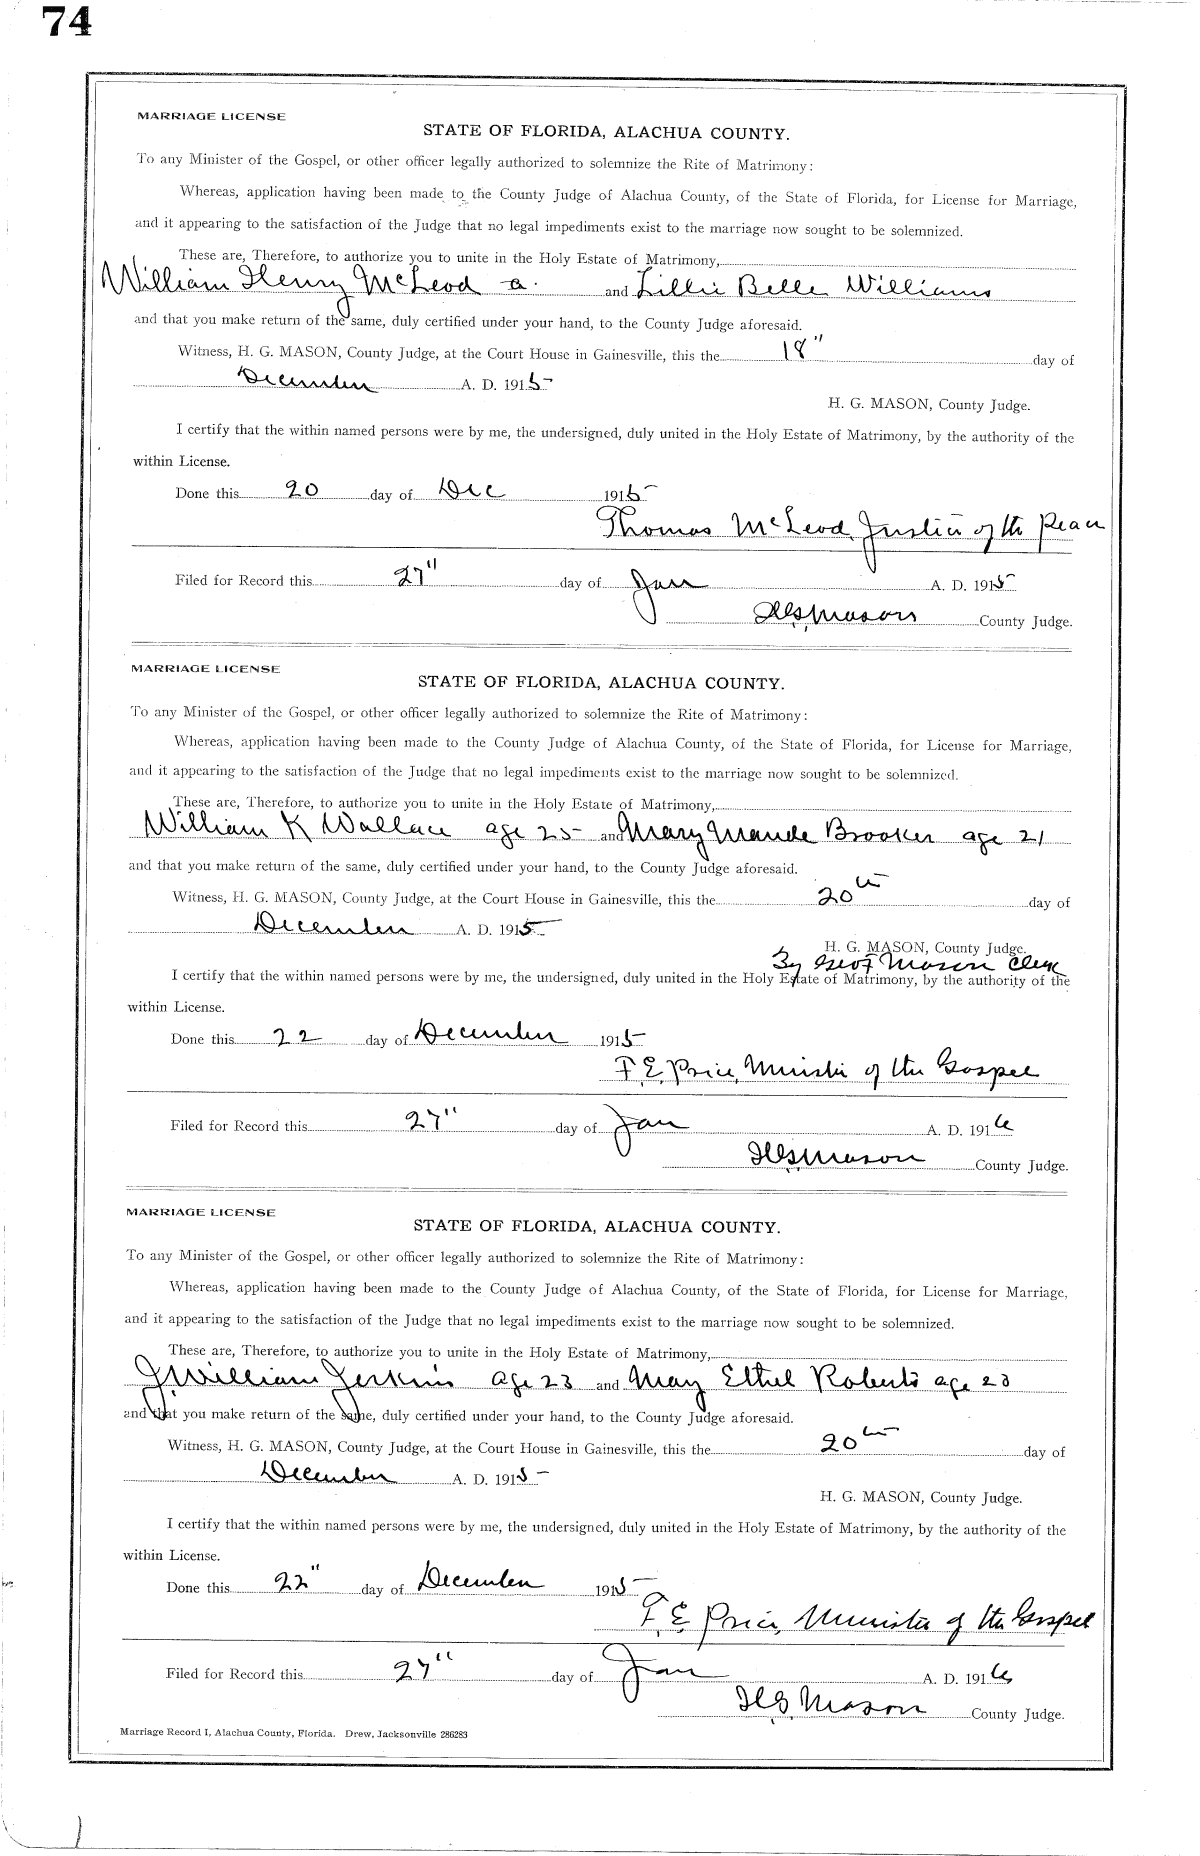 74
MARRIAGE LICENSE
STATE OF FLORIDA, ALACHUA COUNTY.
To any Minister of the Gospel, or other officer legally authorized to solemnize the Rite of Matrimony:
Whereas, application having been made to the County Judge of Alachua County, of the State of Florida, for License for Marriage,
and it appearing to the satisfaction of the Judge that no legal impediments exist to the marriage now sought to be solemnized.
These are, Therefore, to authorize you to unite in the Holy Estate of Matrimony,
William Henry McLeod a. and Lillie Belle Williams
and that you make return of the same, duly certified under your hand, to the County Judge aforesaid.
Witness, H. G. MASON, County Judge, at the Court House in Gainesville, this the 18" day of
December A. D. 1915
H. G. MASON, County Judge.
I certify that the within named persons were by me, the undersigned, duly united in the Holy Estate of Matrimony, by the authority of the
within License.
Done this 20 day of Dec 1915
Thomas McLeod, Justice of the Peace
Filed for Record this 27" day of Jan A. D. 1915
H.G. Mason County Judge.
MARRIAGE LICENSE
STATE OF FLORIDA, ALACHUA COUNTY.
To any Minister of the Gospel, or other officer legally authorized to solemnize the Rite of Matrimony:
Whereas, application having been made to the County Judge of Alachua County, of the State of Florida, for License for Marriage,
and it appearing to the satisfaction of the Judge that no legal impediments exist to the marriage now sought to be solemnized.
These are, Therefore, to authorize you to unite in the Holy Estate of Matrimony,
William K Wallace age 25 and Mary Maude Brooker age 21
and that you make return of the same, duly certified under your hand, to the County Judge aforesaid.
Witness, H. G. MASON, County Judge, at the Court House in Gainesville, this the 20th day of
December A. D. 1915
H. G. MASON, County Judge.
By Mason Clerk
I certify that the within named persons were by me, the undersigned, duly united in the Holy Estate of Matrimony, by the authority of the
within License.
Done this 22 day of December 1915
F. E. Price, Minister of the Gospel
Filed for Record this 27" day of Jan A. D. 1916
H.G. Mason County Judge.
MARRIAGE LICENSE
STATE OF FLORIDA, ALACHUA COUNTY.
To any Minister of the Gospel, or other officer legally authorized to solemnize the Rite of Matrimony:
Whereas, application having been made to the County Judge of Alachua County, of the State of Florida, for License for Marriage,
and it appearing to the satisfaction of the Judge that no legal impediments exist to the marriage now sought to be solemnized.
These are, Therefore, to authorize you to unite in the Holy Estate of Matrimony,
J. William Jerkins age 23 and May Ethel Roberts age 23
and that you make return of the same, duly certified under your hand, to the County Judge aforesaid.
Witness, H. G. MASON, County Judge, at the Court House in Gainesville, this the 20th day of
December A. D. 1915
H. G. MASON, County Judge.
I certify that the within named persons were by me, the undersigned, duly united in the Holy Estate of Matrimony, by the authority of the
within License.
Done this 22" day of December 1915
F. E. Price, Minister of the Gospel
Filed for Record this 27" day of Jan A. D. 1916
H.G. Mason County Judge.
Marriage Record I, Alachua County, Florida. Drew, Jacksonville 286283